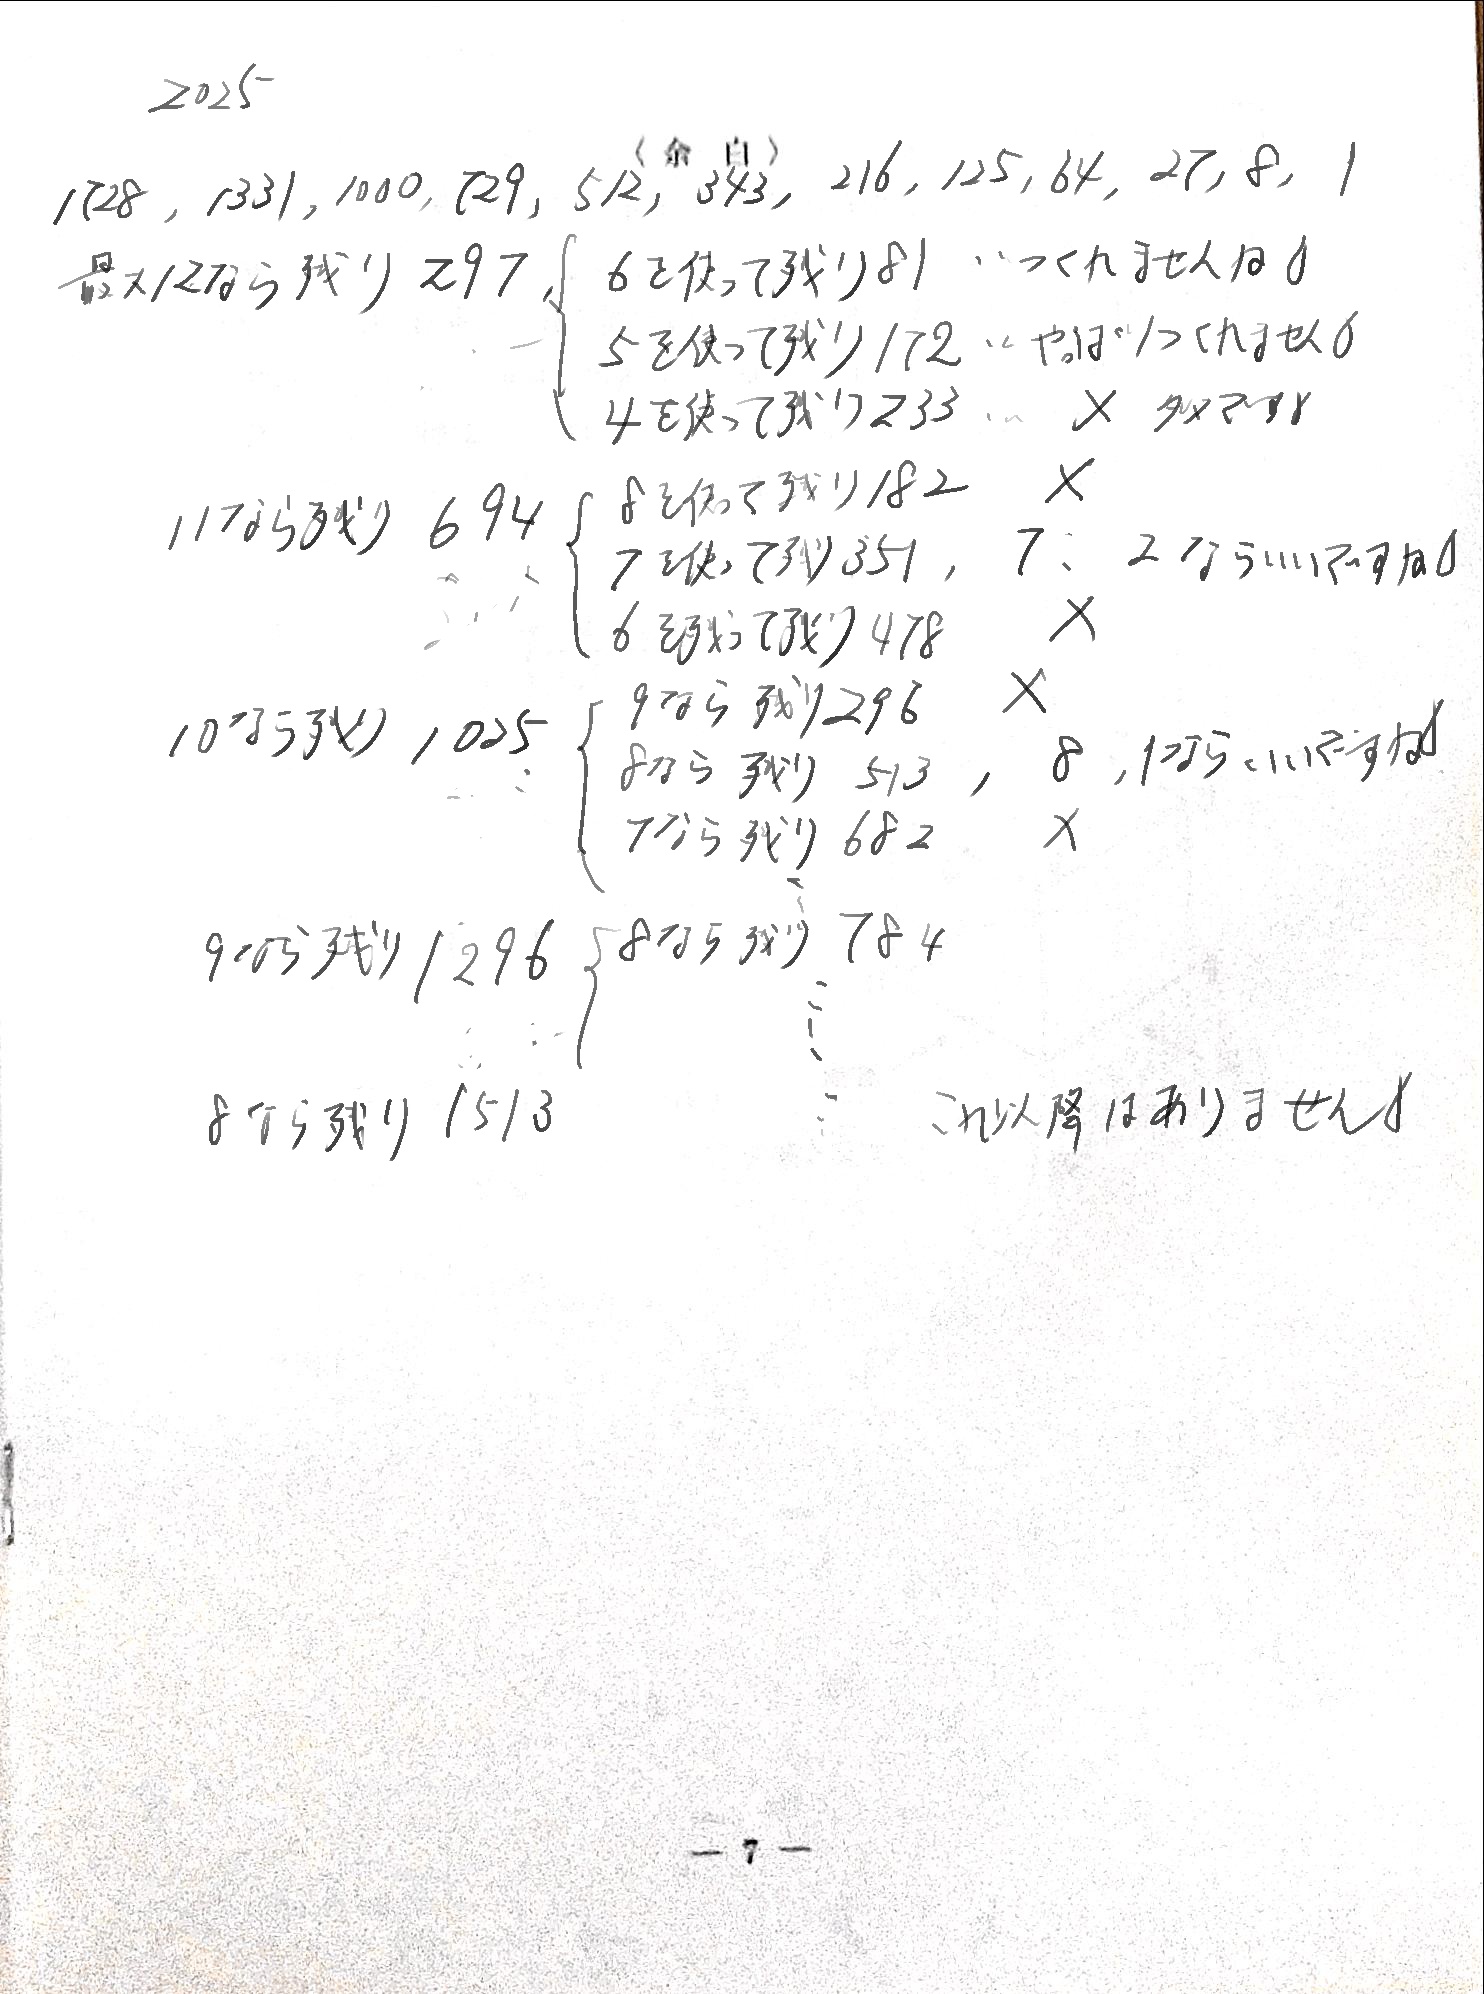 2025
〈余白〉
1728, 1331, 1000, 729, 512, 343, 216, 125, 64, 27, 8, 1
最大12なら残り297,
6を使って残り81 … つくれませんね。
5を使って残り172 … やっぱりつくれません。
4を使って残り233 … × ダメです。
11なら残り 694
8を使って残り182 ×
7を使って残り351, 7、2ならいいですね。
6を残って残り478 ×
10なら残り 1025
9なら残り296 ×
8なら残り 513, 8,1ならいいですね。
7なら残り 682 ×
9なら残り1296
8なら残り 784
8なら残り 1513
これ以降はありません。
— 7 —